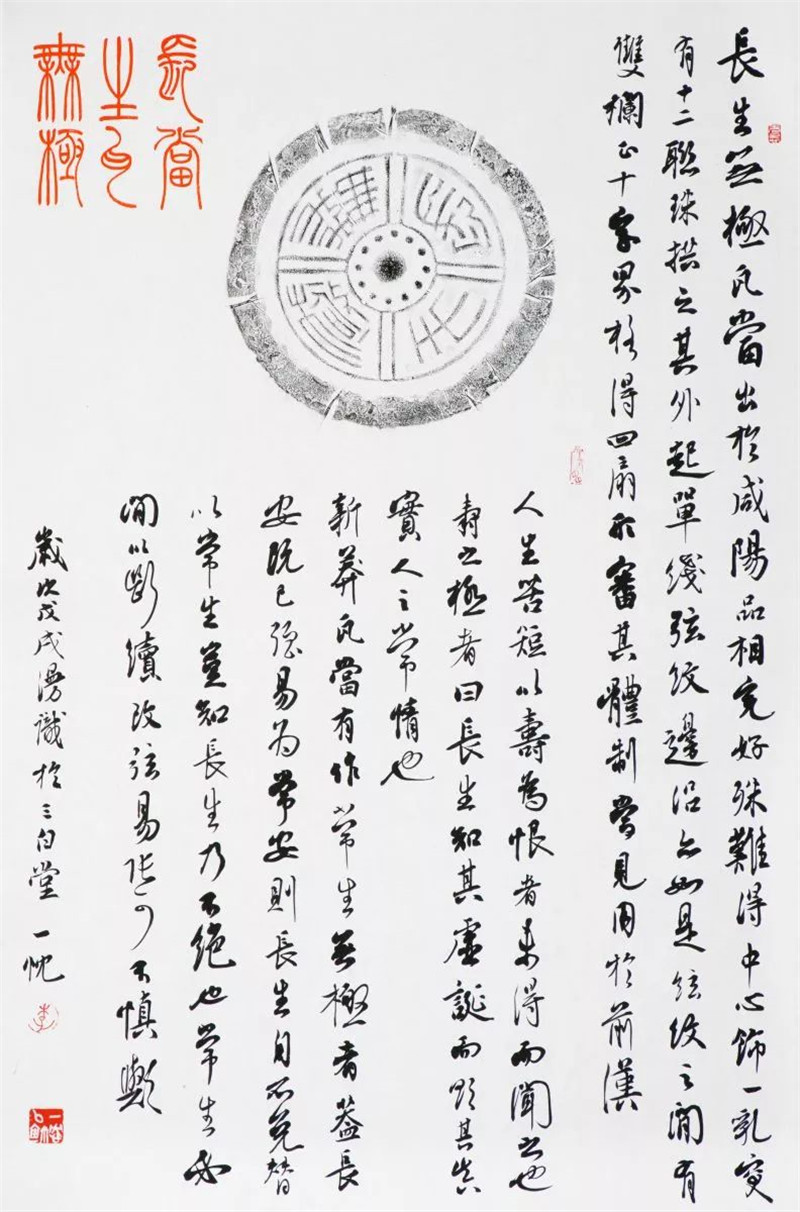 長當
生瓦
無極
長生無極
長生無極瓦當出於咸陽品相完好殊難得中心飾一乳突
有十二聯珠拱之其外起單綫弦紋邊沿亦如是弦紋之間有
雙欄正十字界格得四扇形審其體制當見用於前漢
人生苦短以壽為恨者未得而聞之也
壽之極者曰長生知其虛誕而其真
實人之常情也
新莽瓦當有作常生無極者蓋長
安既已強易為常安則長生自不免替
以常生豈知長生乃不絕也常生必
間以斷續改弦易張可不慎歟
歲次戊戌漫識於三白堂一忱